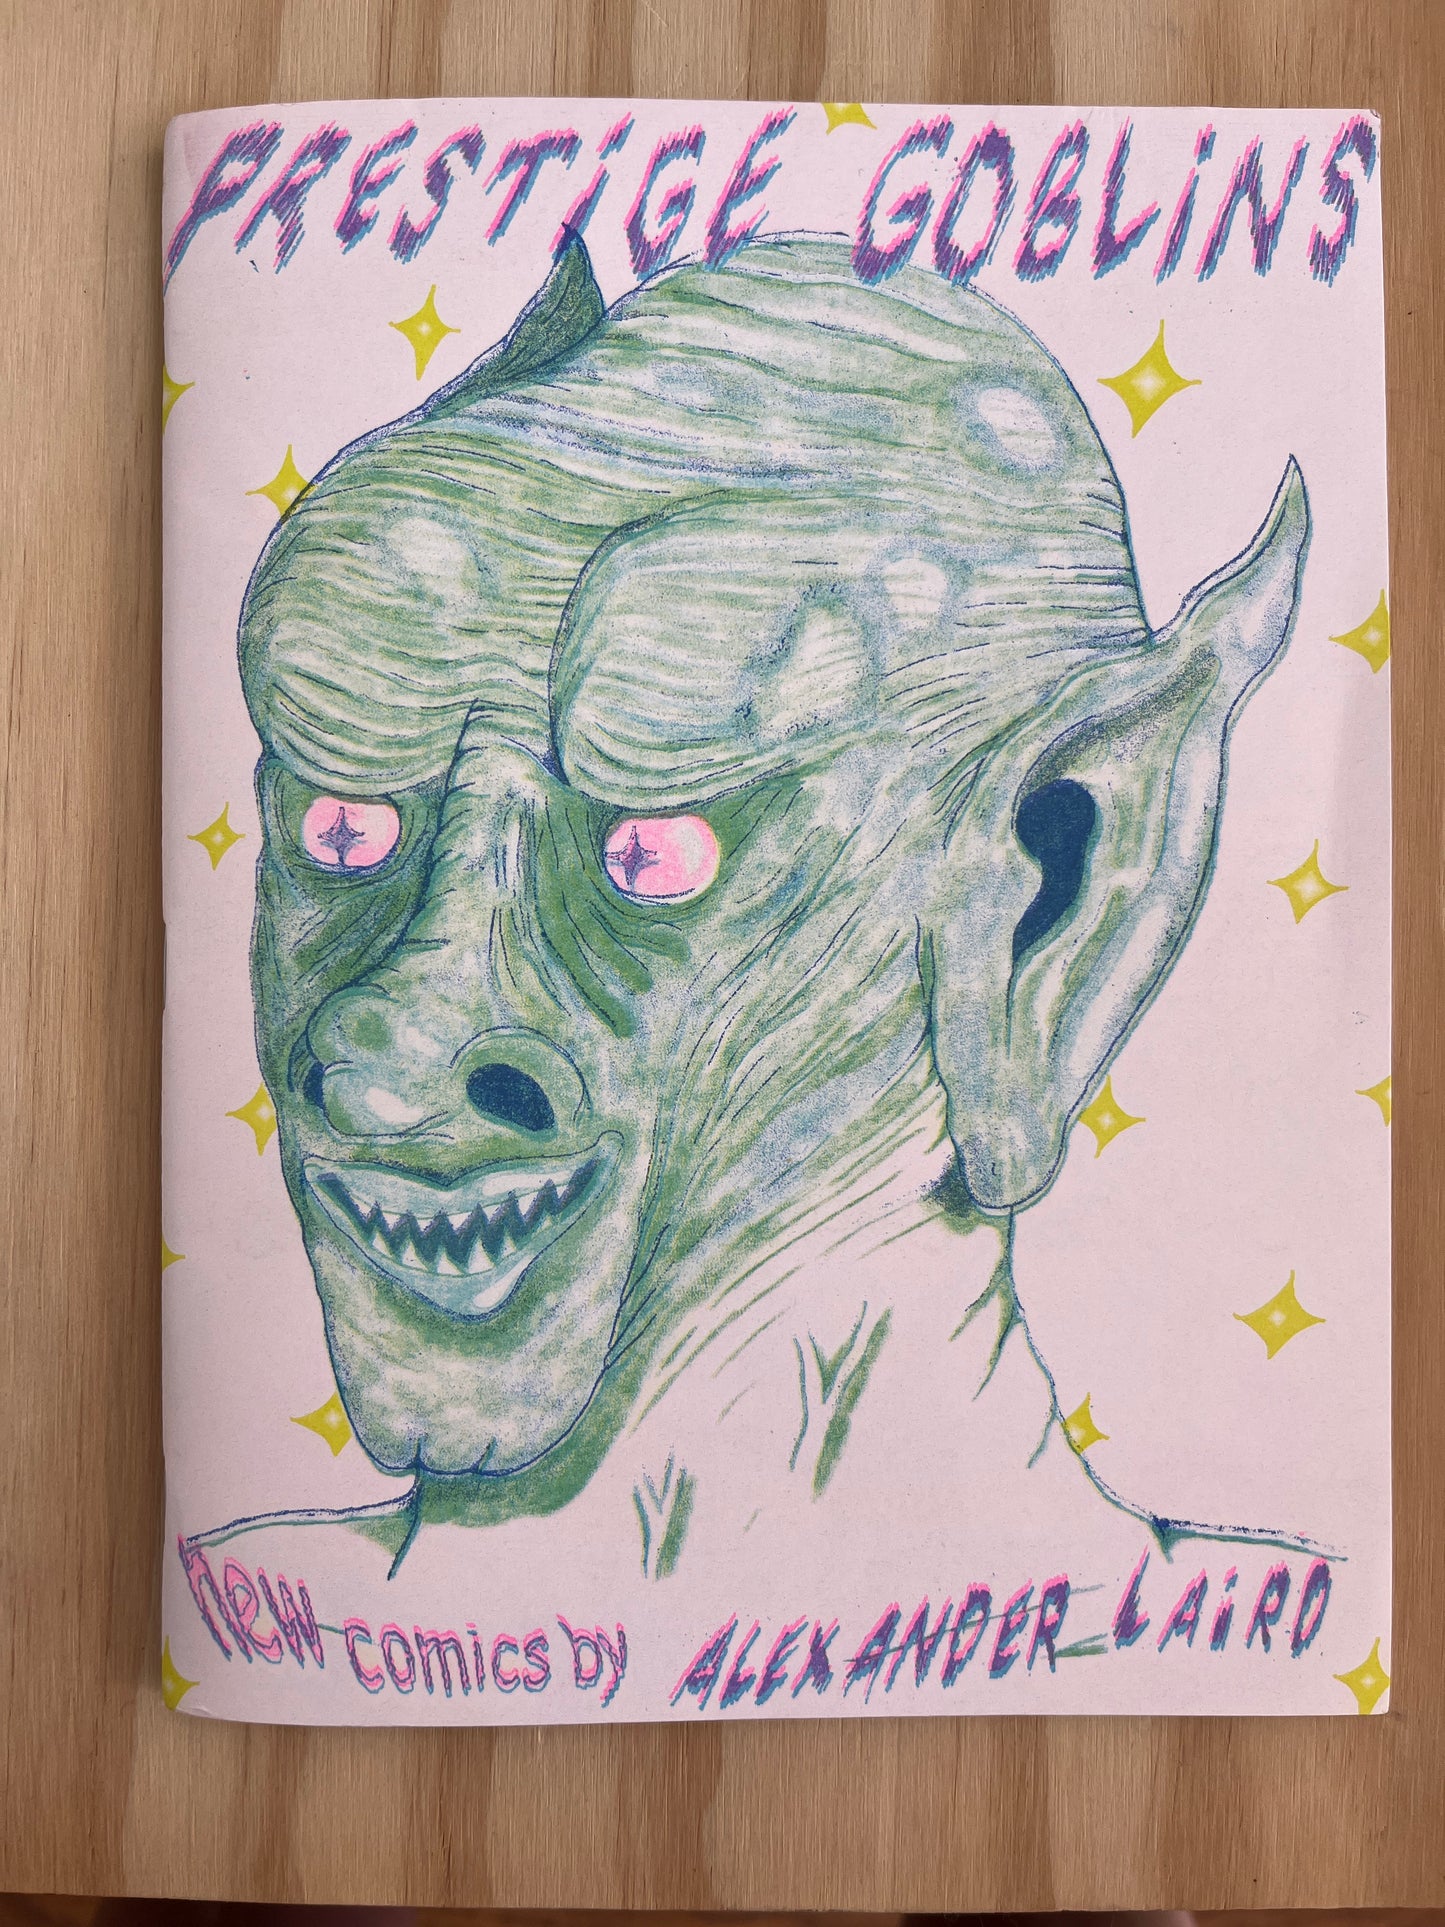 PRESTiGE GOBLiNS
new comics by ALEXANDER LAiRD